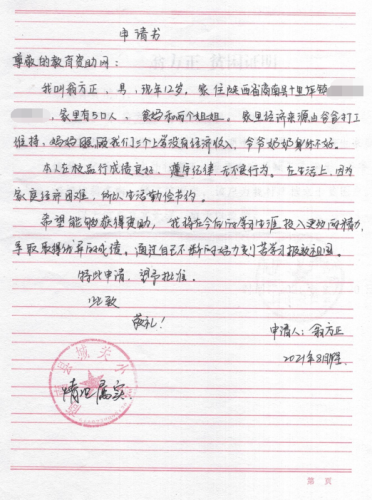 申请书
尊敬的教育资助网：
我叫翁方正，男，现年12岁，家住陕西省商南县十里坪镇
家里有5口人，爸妈和两个姐姐。家里经济来源由爸爸打工
维持，妈妈照顾我们三个上学没有经济收入，爷爷奶奶身体不好。
本人在校品行成绩良好，遵守纪律，无不良行为。在生活上，因为
家庭经济困难，所以生活勤俭节约。
希望能够获得资助，我将在今后的学习生涯投入更加的精力，
争取取得优异的成绩。通过自己不断的努力刻苦学习报效祖国。
特此申请，望予批准。
此致
敬礼！
申请人：翁方正
2021年8月
县城关
情况属实
第 页